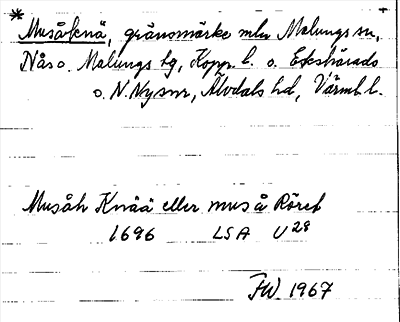 * Musåknä, gränsmärke mln Malungs sn,
Nås o. Malungs tg, Kopp. l. o. Ekshärads
o. N. Ny snr, Älvdals hd, Värml. l.
Musåh Knää eller mus å Röret
1696 LSA U 28
FW 1967